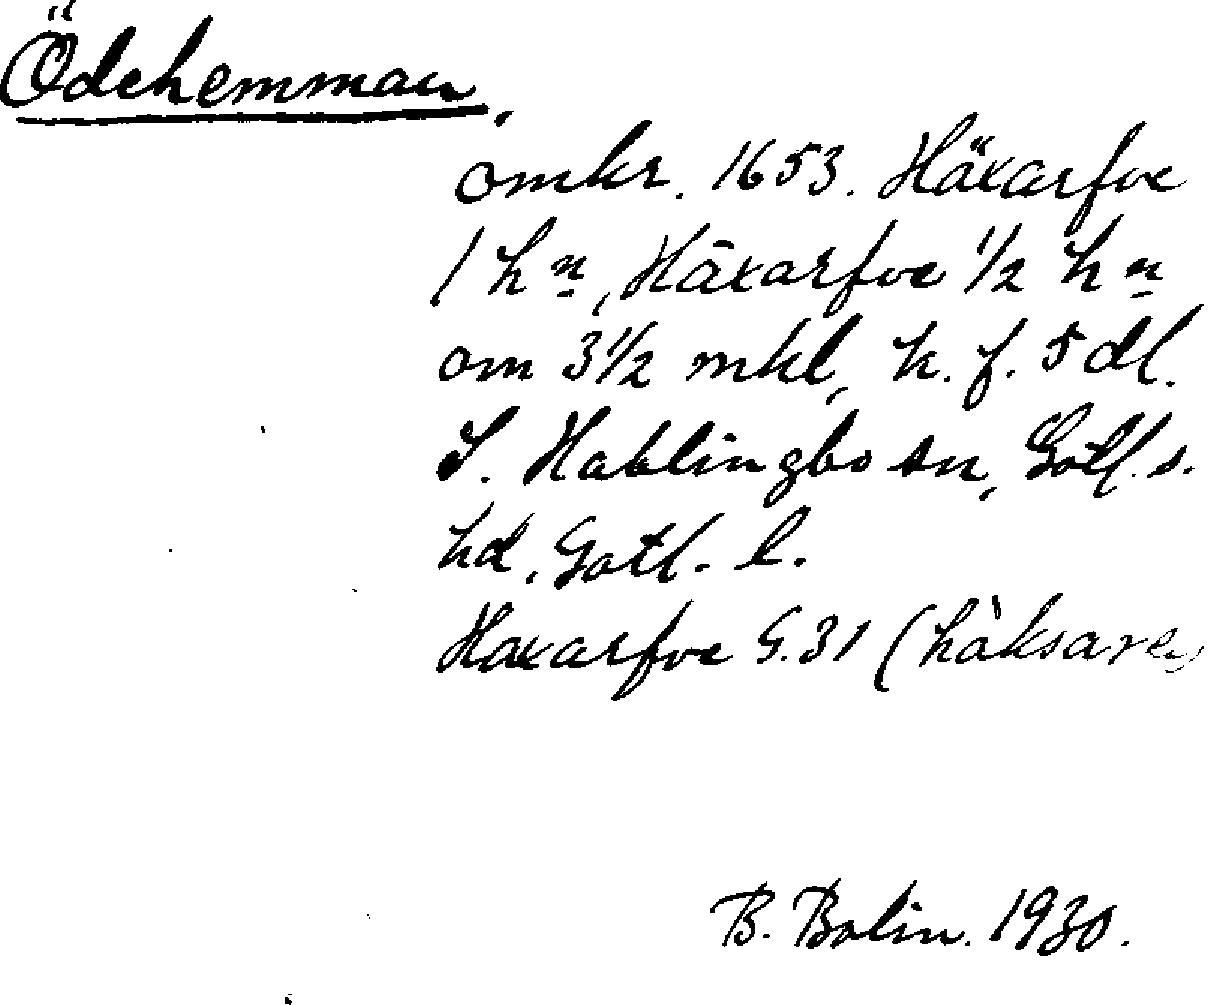 Ödehemman,
omkr. 1653. Häxarfve
1 hn, Häxarfve 1/2 hn
om 3 1/2 mkl, k. f. 5 dl.
S. Hablingbo sn, Gotl. s.
hd, Gotl. l.
Haxarfve G.31 (hàksare)
B. Bolin. 1930.